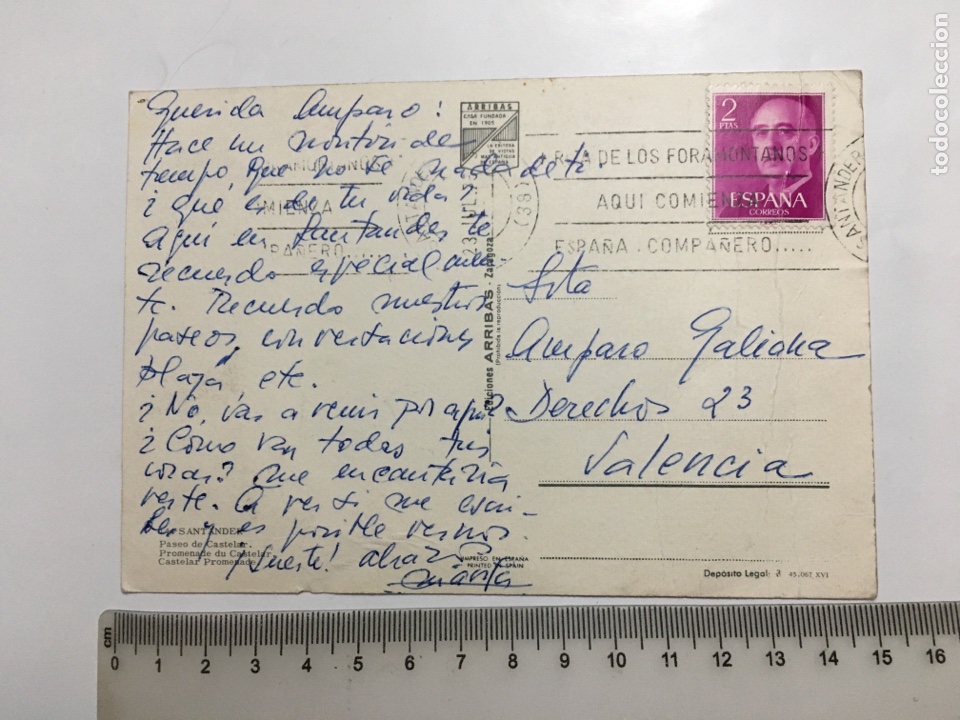 Querida Amparo:
Hace un montón de
tiempo que no sé nada de ti.
¿que es de tu vida?
Aquí en Santander te
recuerdo especialmen-
te. Recuerdo nuestros
paseos, conversaciones
playa, etc.
¿No vas a venir por aquí?
¿Cómo van todas tus
cosas? me encantaría
verte. A ver si me escri-
bes y es posible vernos.
¡Suerte! abrazos
SANTANDER
Paseo de Castelar.
Promenade du Castelar.
Castelar Promenade.
ARRIBAS
CASA FUNDADA
EN 1905
LA EDITORA
DE VISTAS
MAS ANTIGUA
DE ESPAÑA
Ediciones ARRIBAS - Zaragoza
(Prohibida la reproducción)
IMPRESO EN ESPAÑA
PRINTED IN SPAIN
2
PTAS
ESPAÑA
CORREOS
DE LOS FORAMONTANOS
AQUI COMIENZA
ESPAÑA . COMPAÑERO.....
SANTANDER
23 JUL
(38)
Srta
Amparo Galiana
Derechos 23
Valencia
Depósito Legal: 45.067 XVI
todocoleccion
cm
0 1 2 3 4 5 6 7 8 9 10 11 12 13 14 15 16